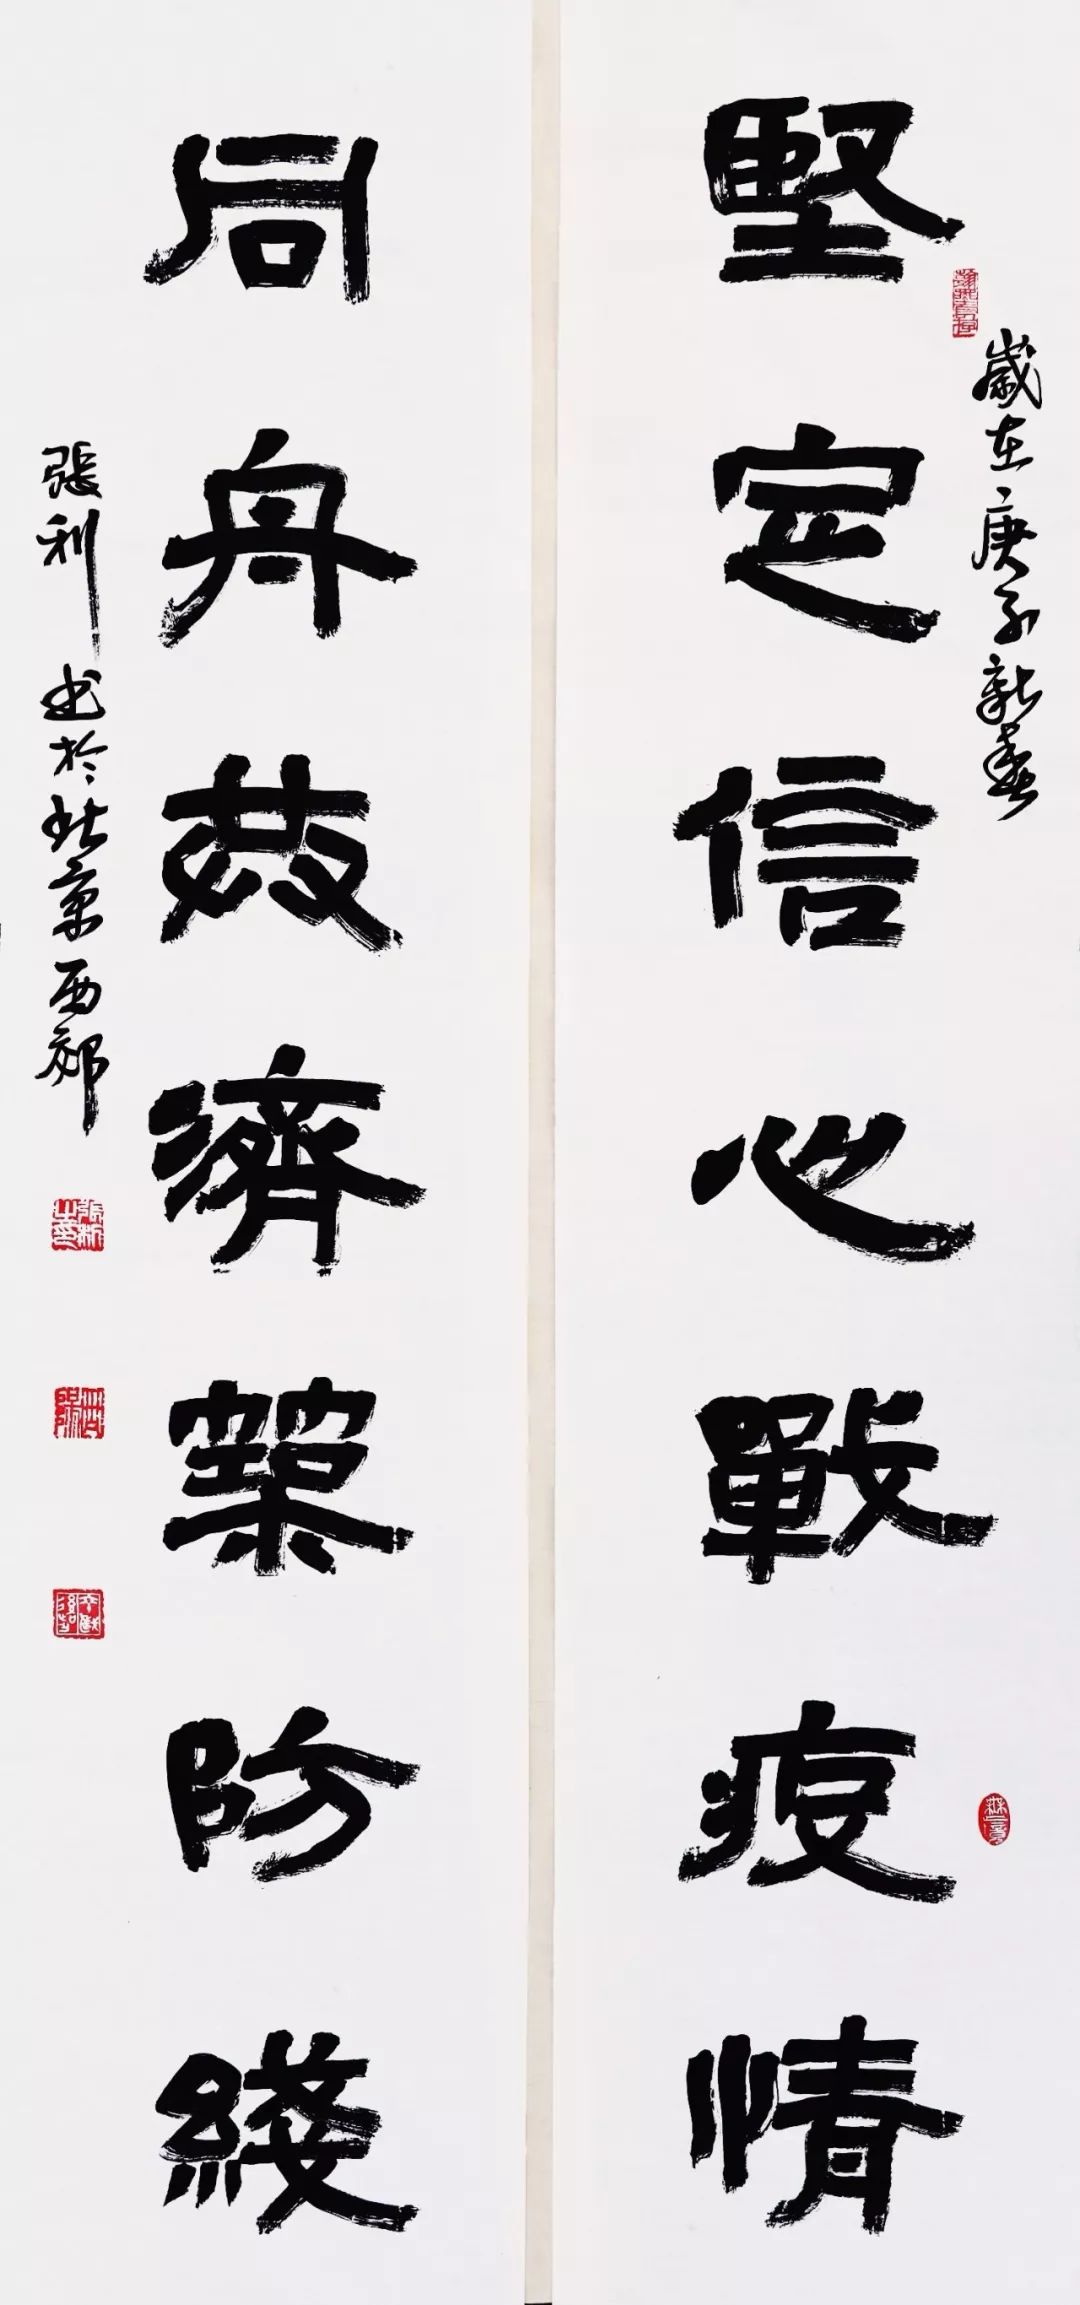 堅定信心戰疫情
歲在庚子新春
同舟共濟築防綫
張利書於北京西郊
張利之印